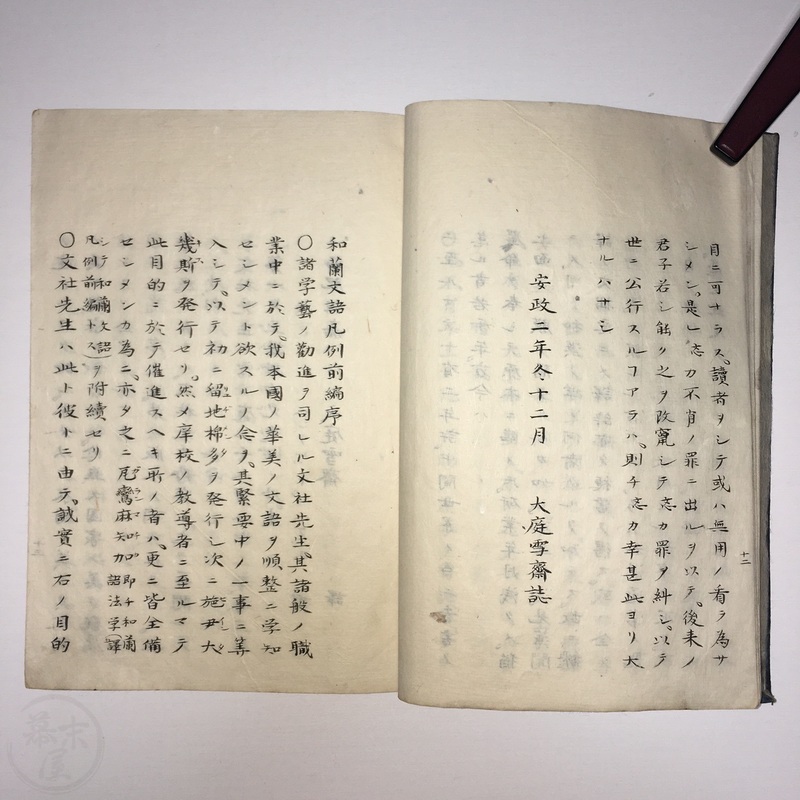 目ニ可ナラス。讀者ヲシテ或ハ無用ノ看ヲ為サ
シメン。是レ忞カ不肖ノ罪ニ出ルヲ以テ。後来ノ
君子若シ能ク之ヲ改竄シテ忞カ罪ヲ糾シ。以テ
世ニ公行スルフアラハ。則チ忞カ幸甚此ヨリ大
ナルハナシ
安政二年冬十二月 大庭雪齋誌
十二
和蘭文語凡例前編序
〇諸学藝ノ勸進ヲ司レル文社先生。其諸般ノ職
業中ニ於テ。我本國ノ華美ノ文語ヲ順整ニ学知
セシメント欲スルノ念ヲ。其緊要中ノ一事ニ筭
入シテ。以テ初ニ留地棉多ヲ発行シ次ニ施尹大
幾斯ヲ発行セリ。然メ庠校ノ教導者ニ至ルマテ
此目的ニ於テ催進スヘキ所ノ者ハ。更ニ皆全備
セシメンカ為ニ。亦タ之ニ瓦鸞麻知加即チ和蘭語法学(譯
シテ和蘭文語凡例前編トス)ヲ附續セリ
〇文社先生ハ此ト彼トニ由テ。誠實ニ右ノ目的